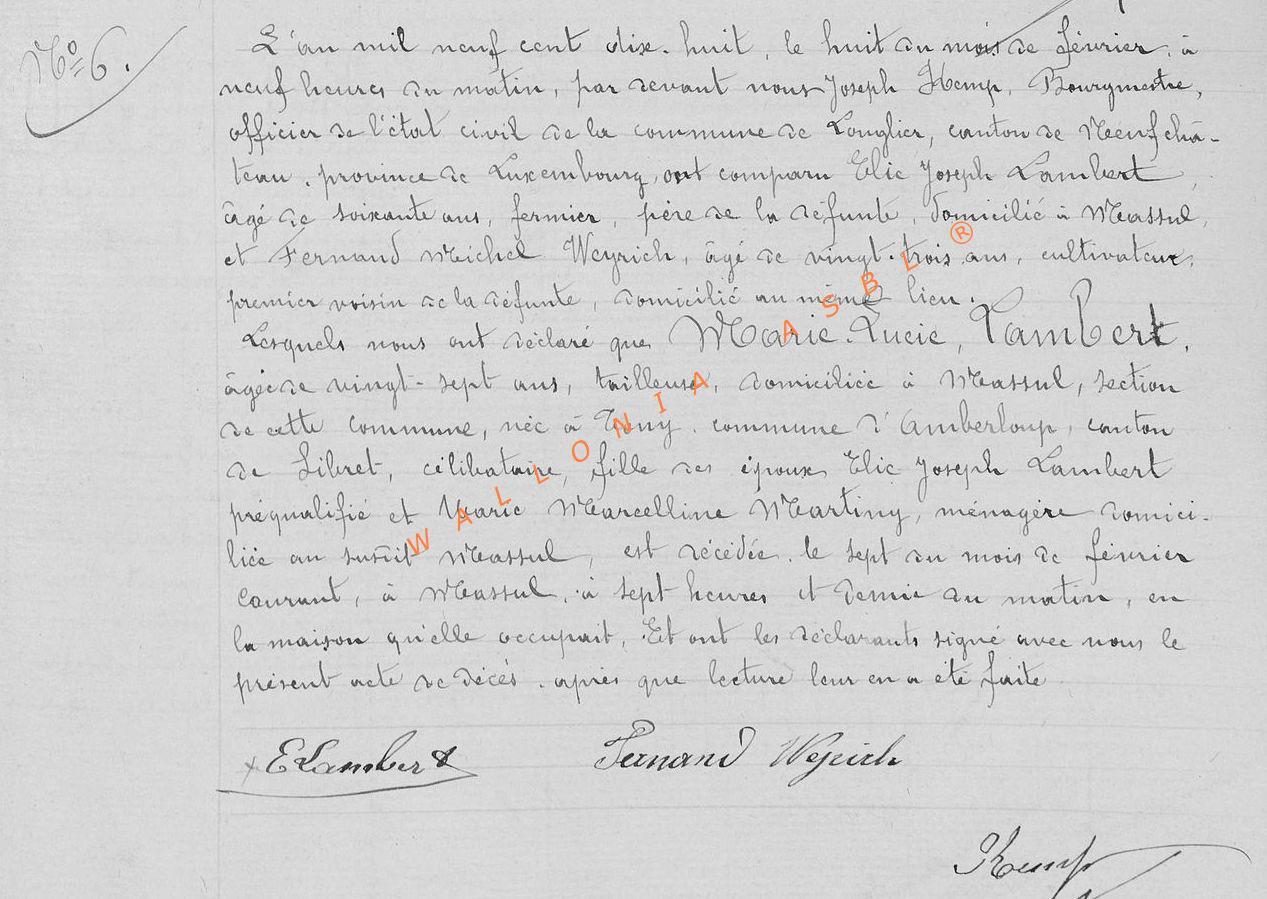 N° 6.
L'an mil neuf cent dix-huit, le huit du mois de février, à
neuf heures du matin, par devant nous Joseph Kemp, Bourgmestre,
officier de l'état civil de la commune de Longlier, canton de Neufchâ-
teau, province de Luxembourg, ont comparu Elie Joseph Lambert,
âgé de soixante ans, fermier, père de la défunte, domicilié à Massul,
et Fernand Michel Weyrich, âgé de vingt-trois ans, cultivateur,
premier voisin de la défunte, domicilié au même lieu.
Lesquels nous ont déclaré que Marie-Lucie, Lambert,
âgée de vingt-sept ans, tailleuse, domiciliée à Massul, section
de cette commune, née à Tony, commune d'Amberloup, canton
de Sibret, célibataire, fille des époux Elie Joseph Lambert
préqualifié et Marie Marcelline Martiny, ménagère domici-
liée au susdit Massul, est décédée le sept du mois de février
courant, à Massul, à sept heures et demie du matin, en
la maison qu'elle occupait. Et ont les déclarants signé avec nous le
présent acte de décès, après que lecture leur en a été faite
E Lambert Fernand Weyrich
Kemp
WALLONIA ASBL ®